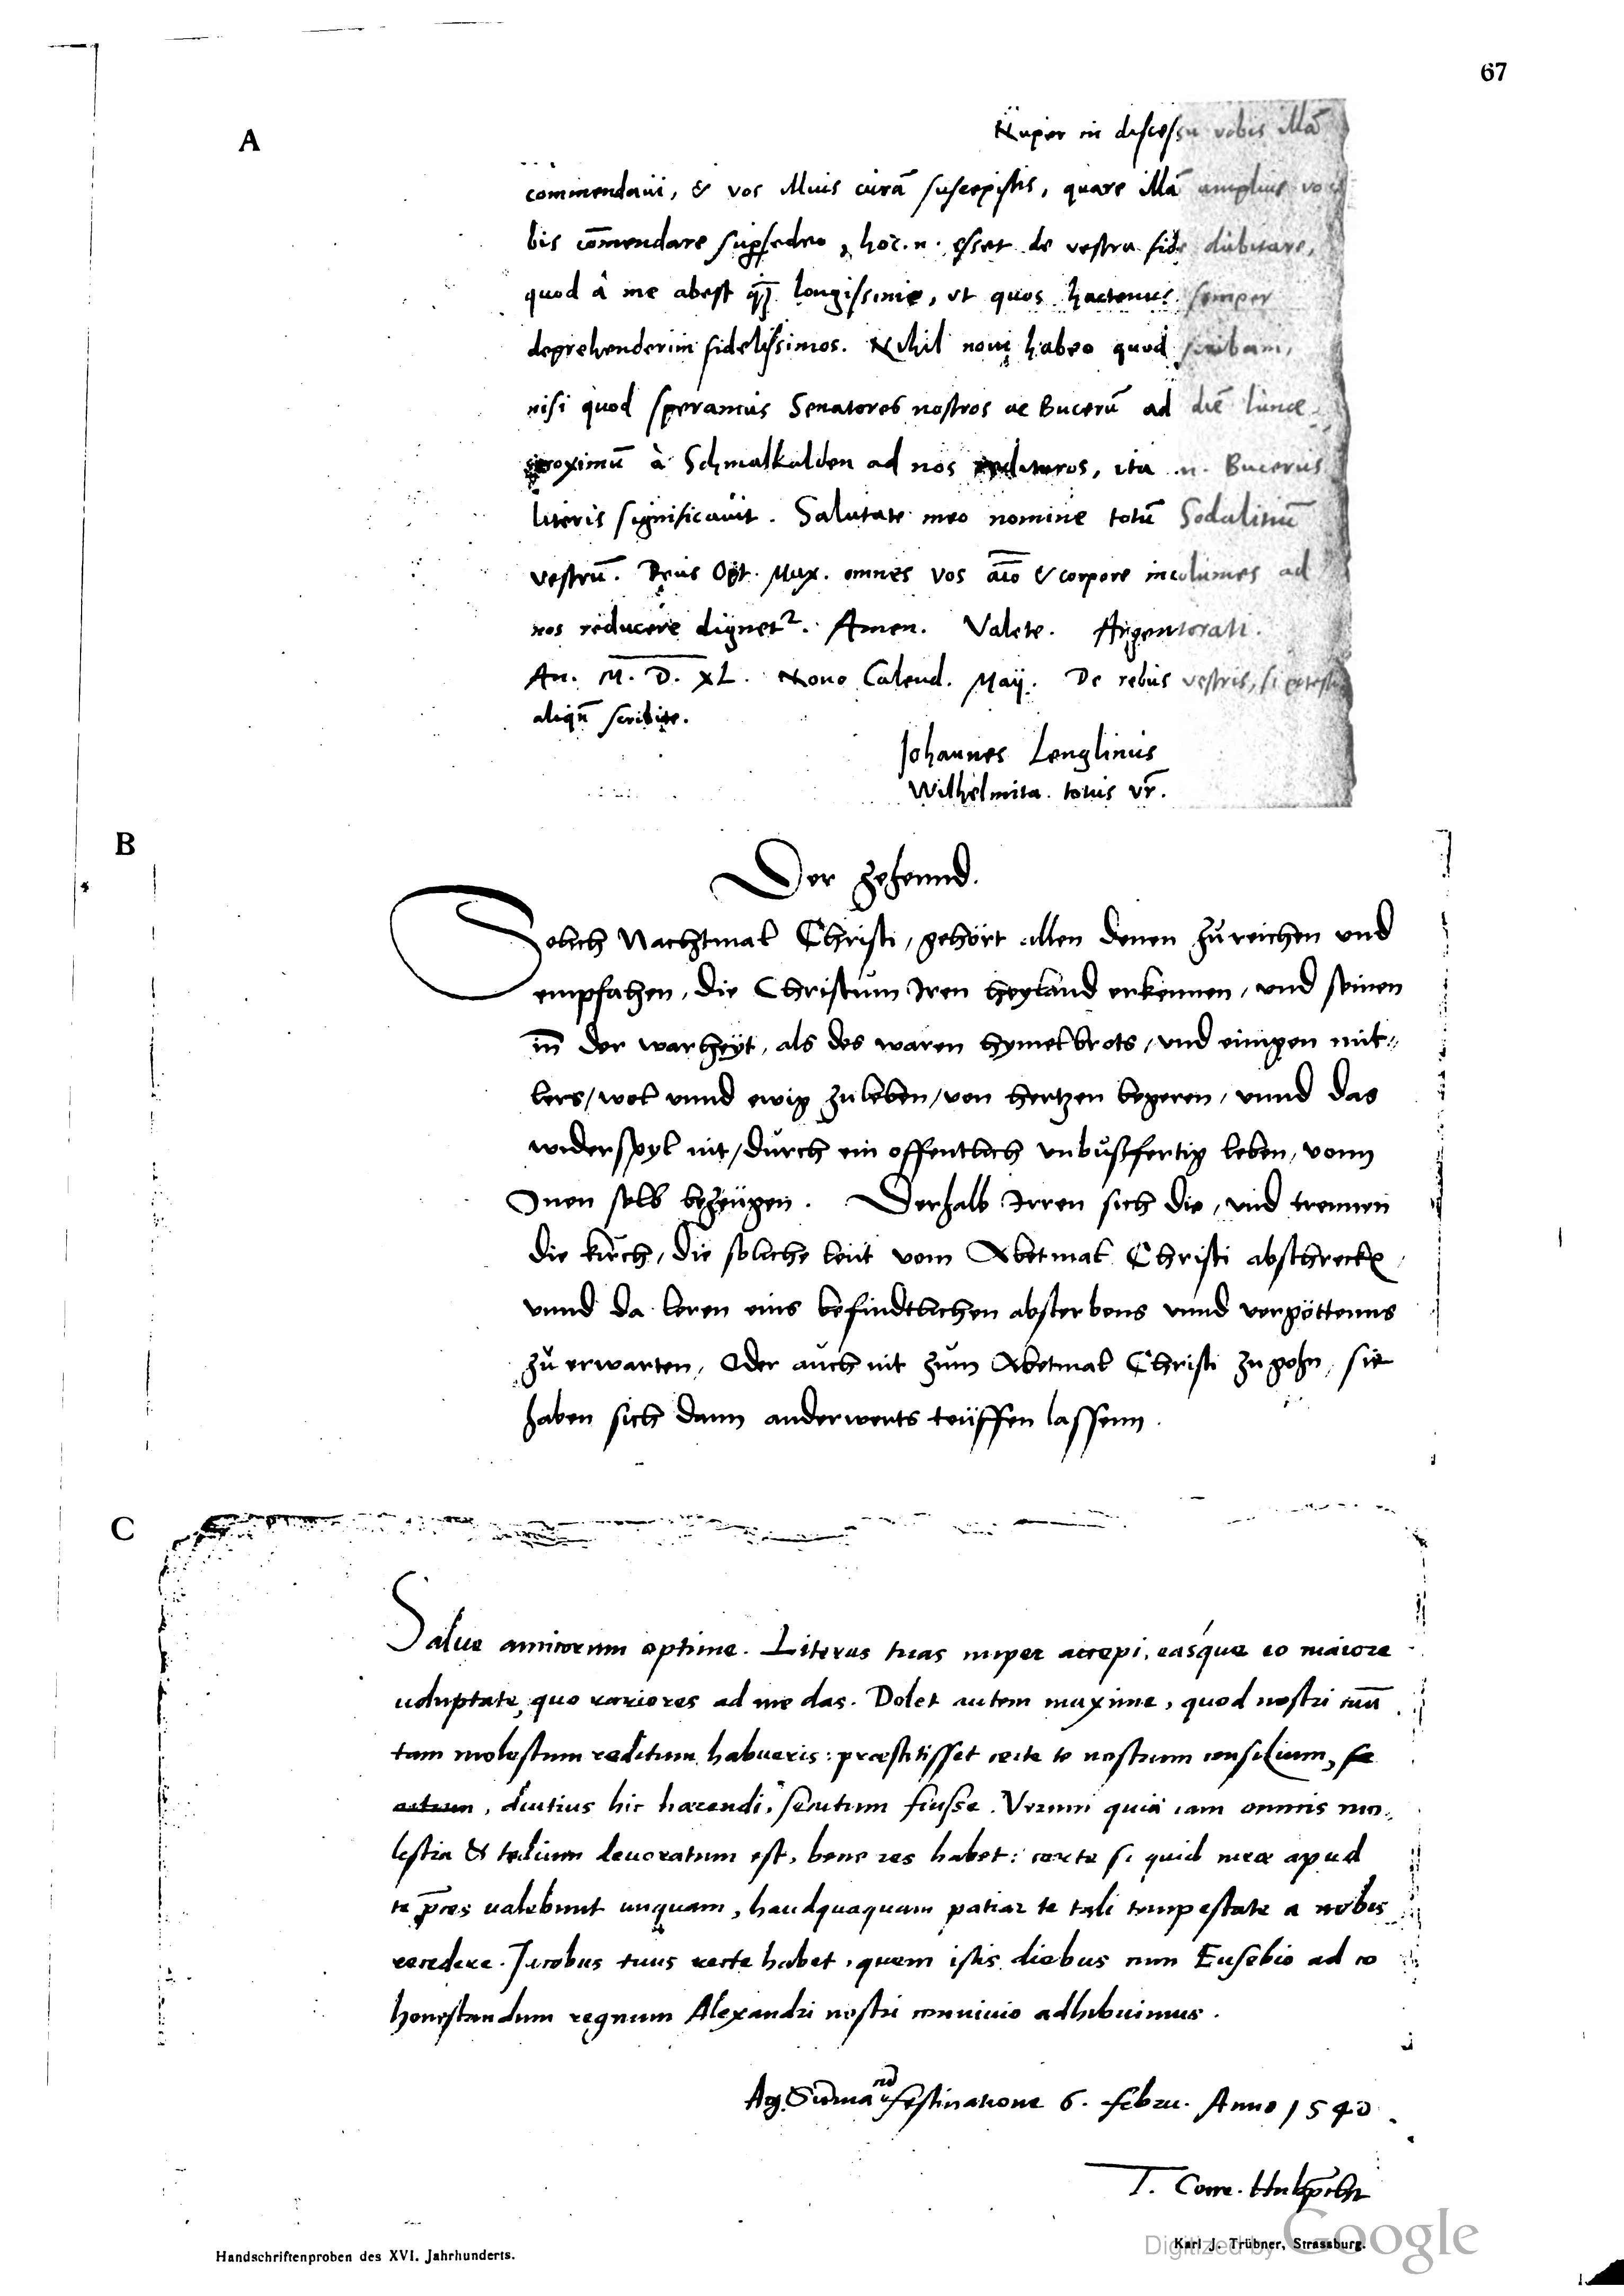 67
A
Nuper in discessu vobis illā
commendaui, & vos illius curā suscepistis, quare illā amplius vo
bis cōmendare supersedeo, hoc. n. esset de vestra fide dubitare,
quod à me abest longissime, vt quos hactenus semper
deprehenderim fidelissimos. Nihil noui habeo quod scribam,
nisi quod speramus Senatores nostros ac Bucerū ad diē lunae
proximū à Schmalkalden ad nos redituros, ita .n. Bucerus
literis significauit. Salutate meo nomine totū Sodalitiū
vestrū. Deus Opt. Max. omnes vos aīo & corpore incolumes ad
nos reducere dignet². Amen. Valete. Argentorati.
An. M. D. XL. Nono Calend. Maij. De rebus vestris, si potestis
aliqū scribite.
Johannes Lenglinus
Wilhelmita. totus vr̄.
B
Der zehennd.
Solich Nachtmal Christi, gehört allen denen zů reichen vnd
empfahen, die Christum Iren heyland erkennen, vnd seinen
in̄ der warheyt, als des waren hymelbrots, vnd einigen mit-
lers, wol vnnd ewig zu leben, von hertzen begeren, vnnd das
widerspyl nit, durch ein offentlich vnbůßfertig leben, vonn
Inen selb bezeügen. Derhalb Irren sich die, vnd trennen
die kirch, die soliche leut vom Abetmal Christi abschrecken
vnnd da leren eins befindtlichen absterbens vnnd vergöttenns
zů erwarten, Oder auch nit zům Abetmal Christi zu gohn, sie
haben sich dann anderwerts teüffen lassenn.
C
Salue amicorum optime. Literas tuas nuper accepi, easque eo maiore
uoluptate, quo rariores ad me das. Dolet autem maxime, quod nostri cuū
tam molestum reditum habueris: præstitisset certe te nostrum consilium,
, diutius hic hærendi, secutum fuisse. Verum quia iam omnis mo-
lestia & tædium deuoratum est, bene res habet: certe si quid meæ apud
te p̄ces ualebunt unquam, haudquaquam patiar te tali tempestate a nobis
recedere. Jacobus tuus recte habet, quem istis diebus cum Eusebio ad co
honestandum regnum Alexandri nostri conuiuio adhibuimus.
Arg. Suma festinatione 6. febru. Anno 1540.
T. Conr. Hubpertus
Handschriftenproben des XVI. Jahrhunderts.
Karl J. Trübner, Strassburg.
Digitized by Google